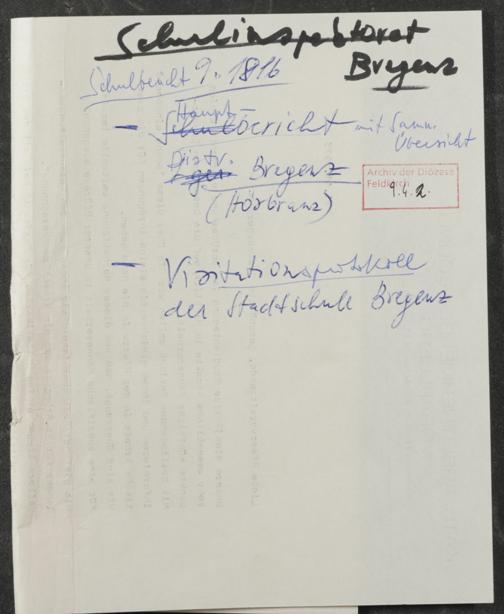 Schulinspektorat
Bregenz
Schulbericht 9. 1816
Haupt-
- Schulbericht mit Samm.
Übersicht
Distr.
Bregenz
(Hörbranz)
Archiv der Diözese
Feldkirch
9.4.2.
- Visitationsprotokoll
der Stadtschule Bregenz